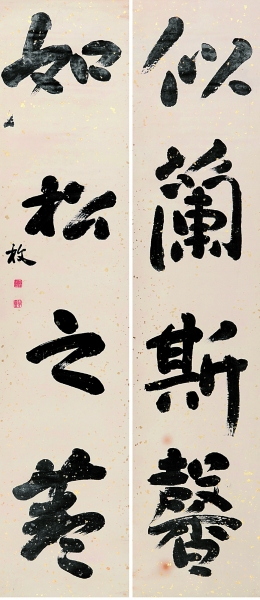 似蘭斯馨
如松之盛